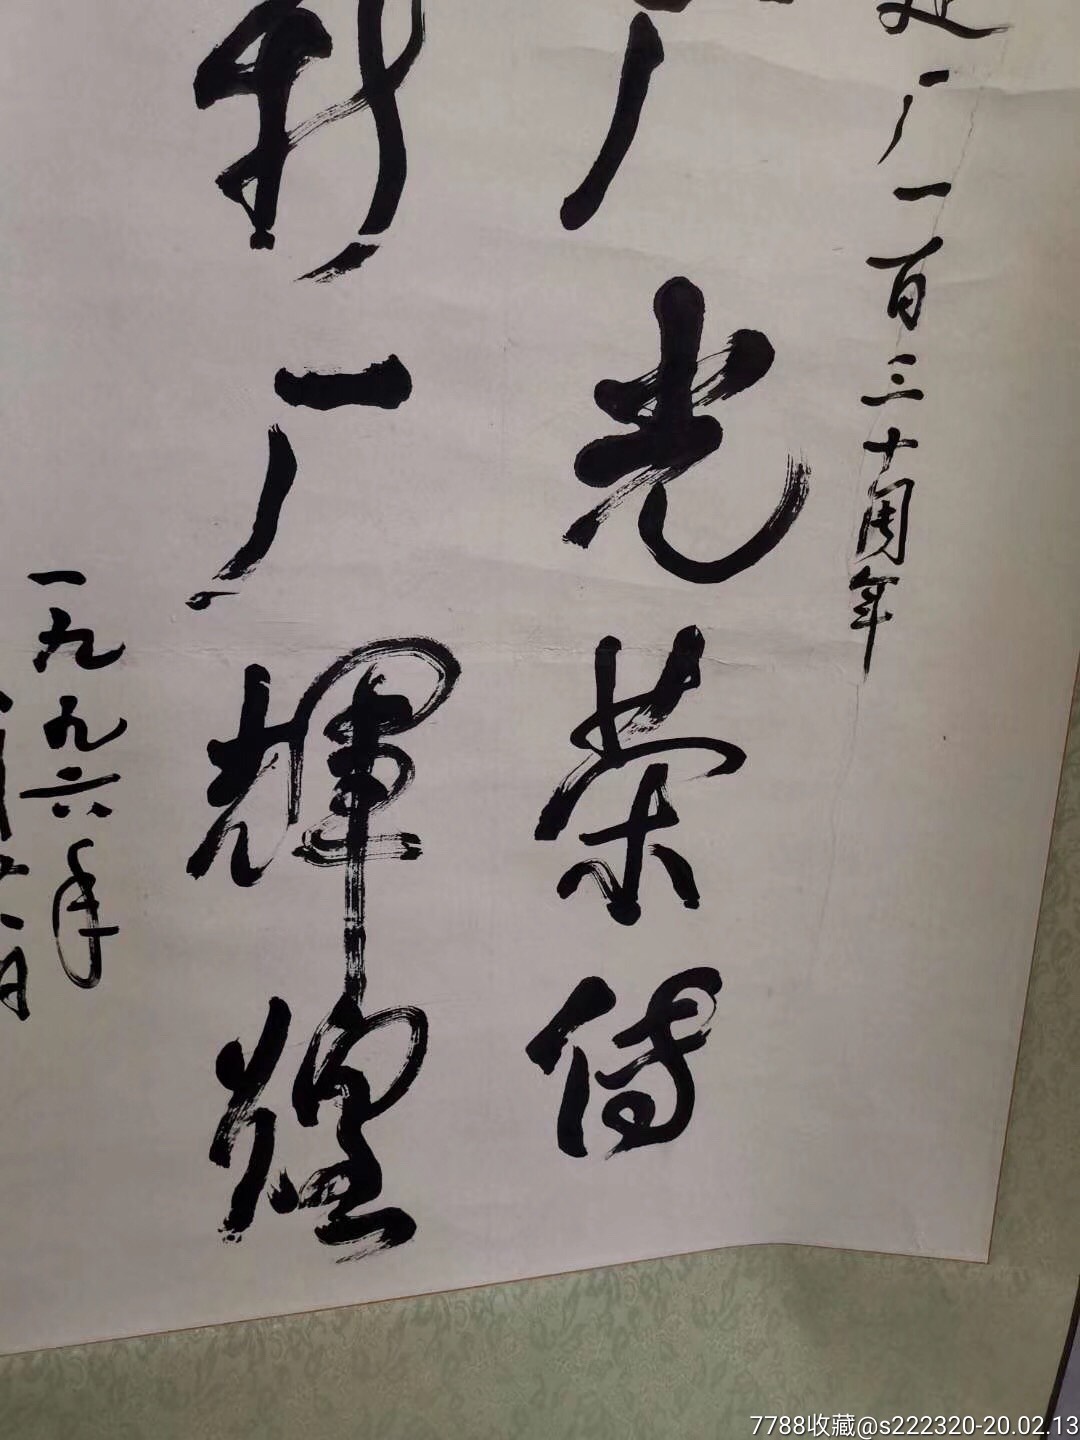 建厂一百三十周年
厂光荣传
新厂辉煌
一九九六年
月
7788收藏@s222320-20.02.13